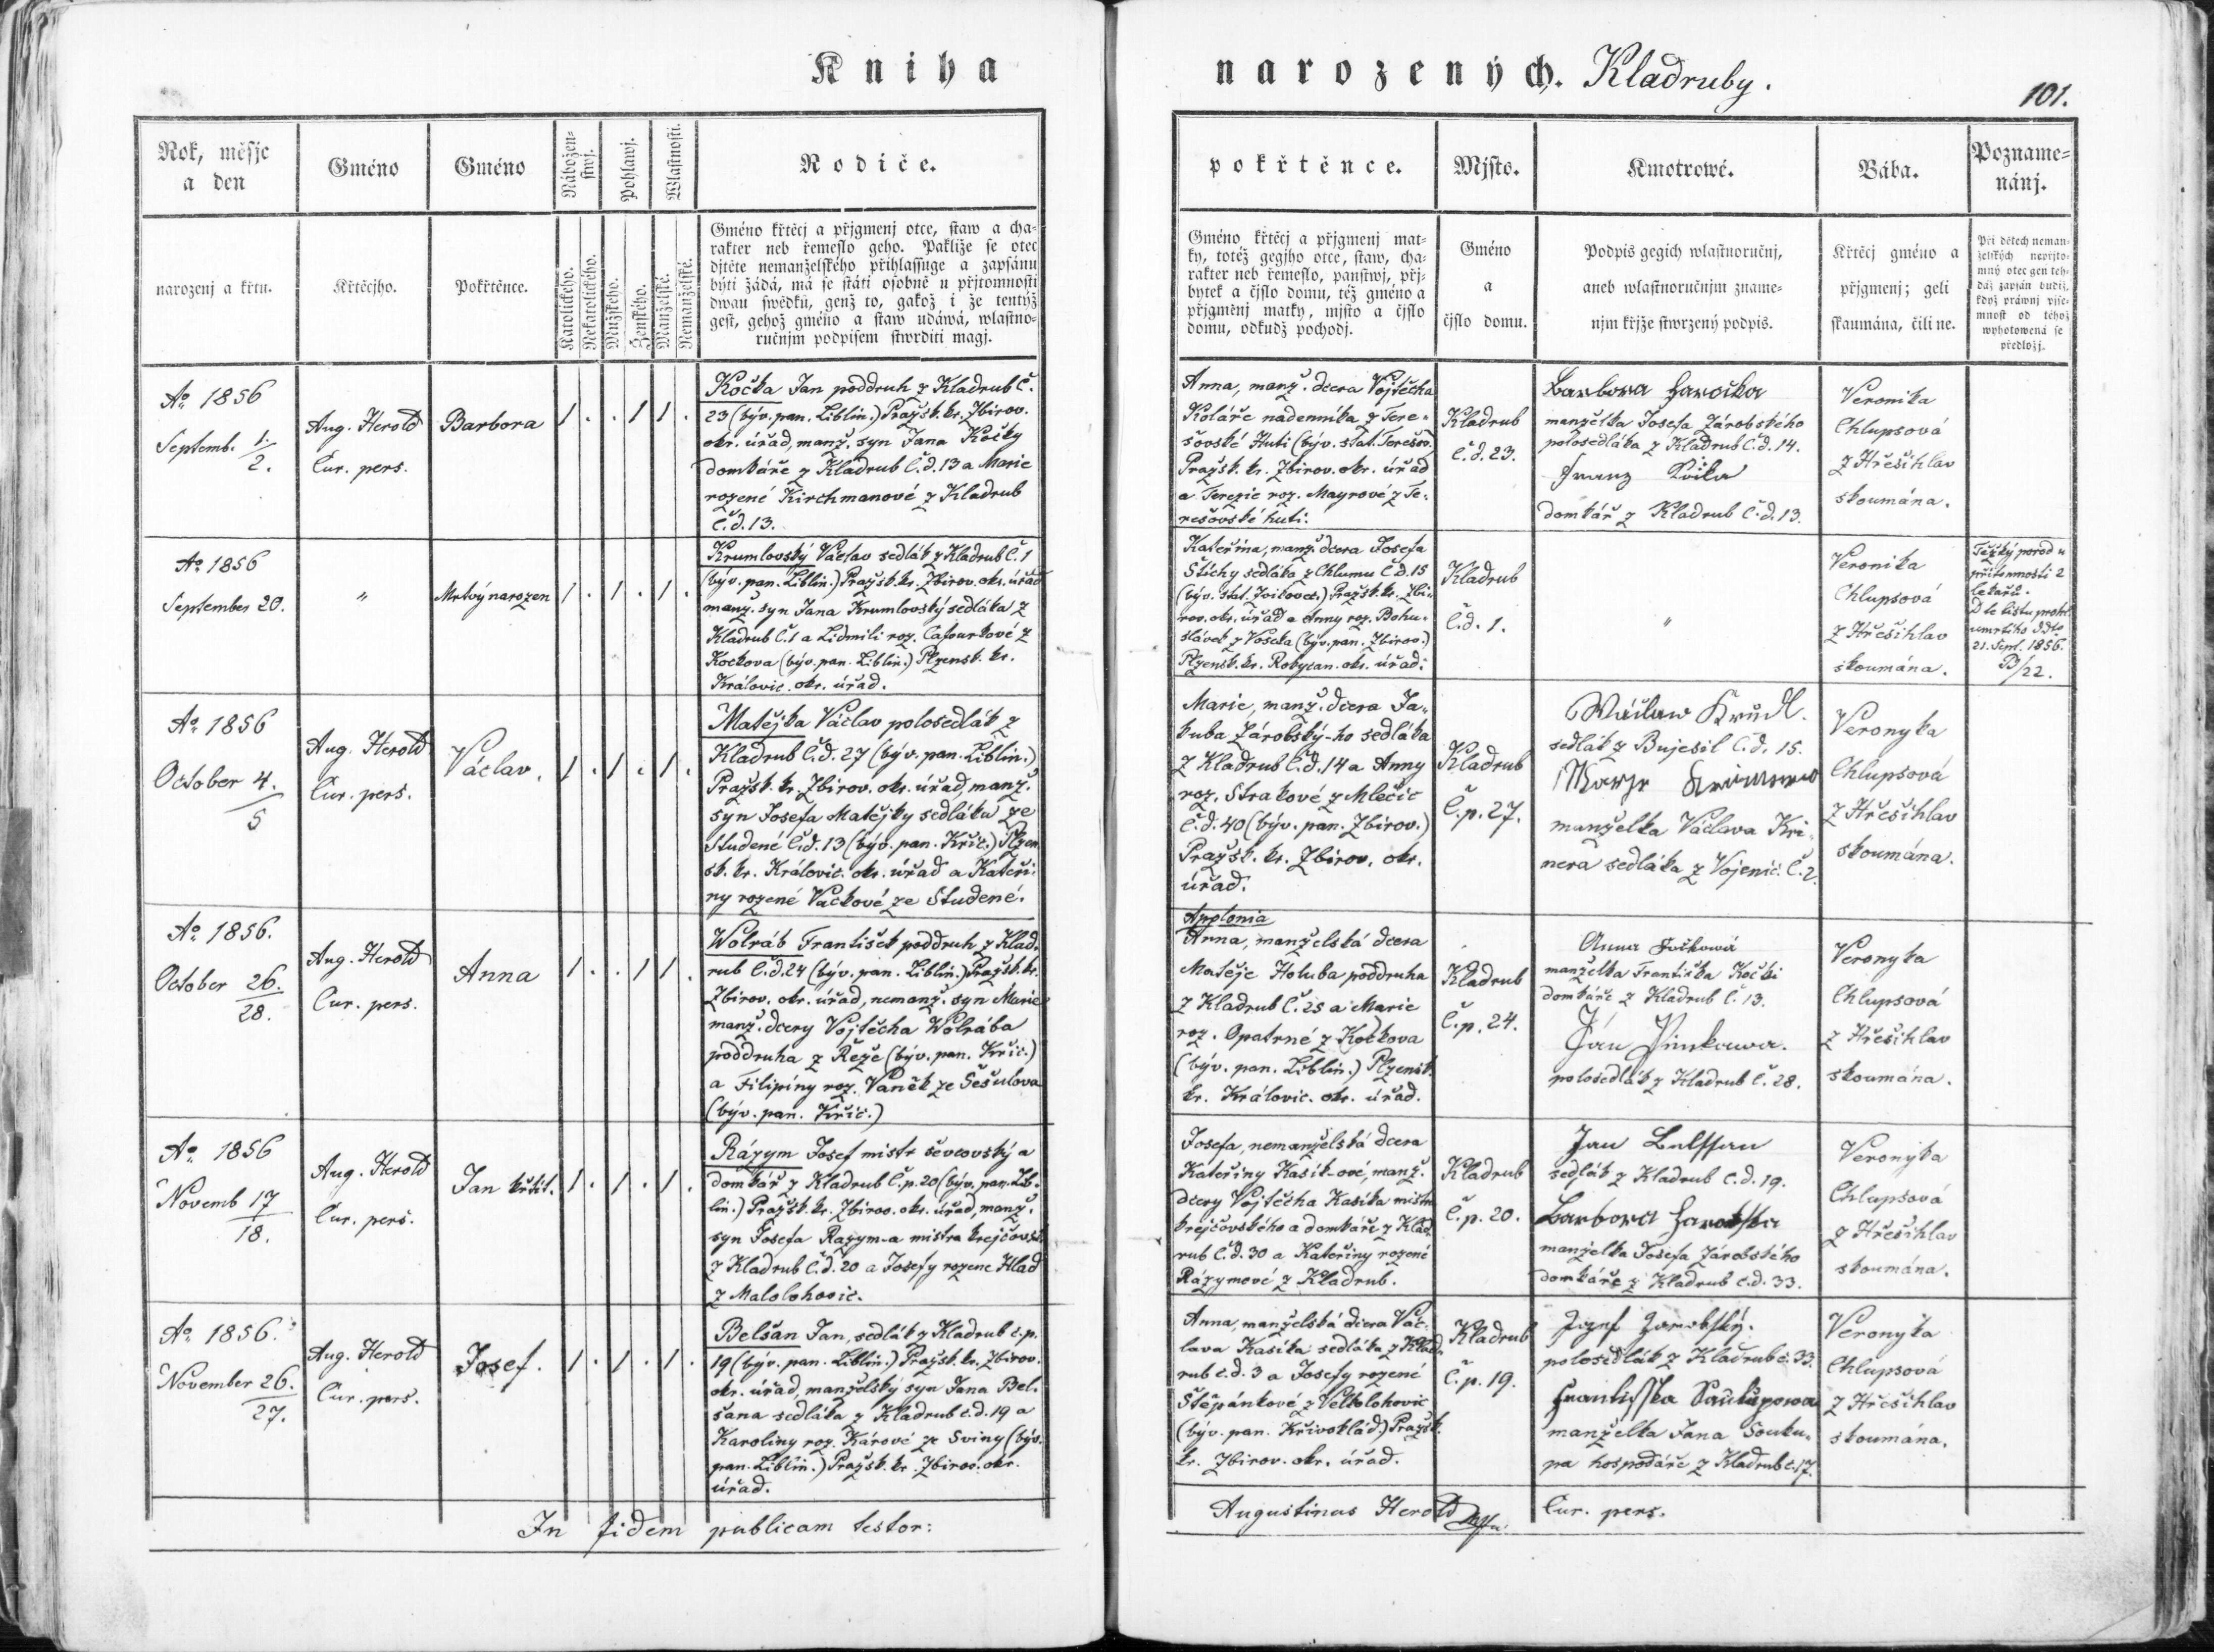 Kniha
narozených. Kladruby.
101.
Rok, měsje
a den
Gméno
Gméno
Nábožen-
stwj.
Pohlawj.
Wlastnosti.
Rodiče.
narozenj a křtu.
Křtěcjho.
Pokřtěnce.
Katolického.
Nekatolického.
Mužského.
Ženského.
Manželské.
Nemanželské.
Gméno křtěcj a přjgmenj otce, staw a cha-
rakter neb řemeslo geho. Pakliže se otec
djtěte nemanželského přihlassuge a zapsánu
býti žádá, má se státi osobně u přjtomnosti
dwau swědků, genž to, gakož i že tentýž
gest, gehož gméno a staw udáwá, wlastno-
ručnjm podpisem stwrditi magj.
pokřtěnce.
Mjsto.
Kmotrowé.
Bába.
Pozname-
nánj.
Gméno křtěcj a přjgmenj mat-
ky, totěž gegjho otce, staw, cha-
rakter neb řemeslo, panstwj, přj-
bytek a čjslo domu, též gméno a
přjgměnj matky, mjsto a čjslo
domu, odkudž pochodj.
Gméno
a
čjslo domu.
Podpis gegich wlastnoručnj,
aneb wlastnoručnjm zname-
njm křjže stwrzený podpis.
Křtěcj gméno a
přjgmenj; geli
skaumána, čili ne.
Při dětech neman-
želských nepřjto-
mný otec gen teh-
dáž zapsán budiž,
když práwnj pjse-
mnost od téhož
wyhotowená se
předložj.
Aº 1856
Septemb. 1/2.
Aug. Herold
Cur. pers.
Barbora
1 . . 1 1 .
Kočka Jan poddruh z Kladrub Č.
23 (býv. pan. Liblin.) Pražsk. kr. Zbirov.
okr. úřad, manž. syn Jana Kočky
domkáře z Kladrub Č.d. 13 a Marie
rozené Kirchmanové z Kladrub
Č.d. 13.
Anna, manž. dcera Vojtěcha
Koláře nadenníka z Tere-
šovské Huti (býv. stat. Terešov.)
Pražsk. kr. Zbirov. okr. úřad
a Terezie roz. Mayrové z Te-
rešovské huti.
Kladrub
č.d. 23.
Barbora
manželka Josefa Zárobského
polosedláka z Kladrub Č.d. 14.
Franz
domkář z Kladrub Č.d. 13.
Veronika
Chlupsová
z Hřešihlav
skoumána.
Aº 1856
September 20.
"
Mrtvý narozen
1 . 1 . 1 .
Krumlovský Václav sedlák z Kladrub Č. 1
(býv. pan. Liblin.) Pražsk. kr. Zbirov. okr. úřad
manž. syn Jana Krumlovský sedláka z
Kladrub Č. 1 a Lidmili roz. Cafourkové z
Kockova (býv. pan. Liblin.) Plzensk. kr.
Královic. okr. úřad.
Kateřina, manž. dcera Josefa
Stichy sedláka z Chlumu Č.d. 15
(býv. stat.) Pražsk. kr. Zbi-
rov. okr. úřad a Anny roz. Bohu-
slávek z Voseka (býv. pan. Zbirov.)
Plzensk. kr. Rokycan. okr. úřad.
Kladrub
Č.d. 1.
"
Veronika
Chlupsová
z Hřešihlav
skoumána.
Těžký porod u
přítomnosti 2
lékařů.
Dle listu prohl.
umrtího ddto
21. Sept. 1856.
/22.
Aº 1856
October 4./5
Aug. Herold
Cur. pers.
Václav.
1 . 1 . 1 .
Matějka Václav polosedlák z
Kladrub Č.d. 27 (býv. pan. Liblin.)
Pražsk. kr. Zbirov. okr. úřad, manž.
syn Josefa Matějky sedláka ze
Studené Č.d. 13 (býv. pan. Křic.) Plzen-
sk. kr. Královic. okr. úřad a Kateři-
ny rozené Vackové ze Studené.
Marie, manž. dcera Ja-
kuba Zárobský-ho sedláka
z Kladrub Č.d. 14 a Anny
roz. Strakové z Mlečic
Č.d. 40 (býv. pan. Zbirov.)
Pražsk. kr. Zbirov. okr.
úřad.
Kladrub
Č.p. 27.
Wáclaw
sedlák z Bujesil Č.d. 15.
manželka Václava Kri-
nera sedláka z Vojenic Č. 2.
Veronyka
Chlupsová
z Hřešihlav
skoumána.
Aº 1856.
October 26./28.
Aug. Herold
Cur. pers.
Anna
1 . . 1 1 .
Wolráb František poddruh z Klad-
rub Č.d. 24 (býv. pan. Liblin.) Pražsk. kr.
Zbirov. okr. úřad, nemanž. syn Marie
manž. dcery Vojtěcha Wolrába
poddruha z Řeže (býv. pan. Křic.)
a Filipíny roz. Vaněk ze Šešulova
(býv. pan. Křic.)
Applonia
Anna, manželská dcera
Matěje Holuba poddruha
z Kladrub Č. 25 a Marie
roz. Opatrné z Kočkova
(býv. pan. Liblin.) Plzensk.
kr. Královic. okr. úřad.
Kladrub
Č.p. 24.
Anna
manželka Františka Kočki
domkáře z Kladrub Č. 13.
Ján
polosedlák z Kladrub Č. 28.
Veronyka
Chlupsová
z Hřešihlav
skoumána.
Aº 1856
Novemb 17/18.
Aug. Herold
Cur. pers.
Jan křtit.
1 . 1 . 1 .
Rázym Josef mistr ševcovský a
domkář z Kladrub Č.p. 20 (býv. pan. Lib-
lin.) Pražsk. kr. Zbirov. okr. úřad, manž.
syn Josefa Razym-a mistra krejčovsk.
z Kladrub Č.d. 20 a Josefy rozene Hlad
z Malolohovic.
Josefa, nemanželská dcera
Kateřiny Kasík-ové, manž.
dcery Vojtěcha Kasíka mistra
krejčovského a domkáře z Klad-
rub Č.d. 30 a Kateřiny rozené
Rázymové z Kladrub.
Kladrub
Č.p. 20.
Jan
sedlák z Kladrub č.d. 19.
Barbora
manželka Josefa Zárobského
domkáře z Kladrub č.d. 33.
Veronyka
Chlupsová
z Hřešihlav
skoumána.
Aº 1856.
November 26./27.
Aug. Herold
Cur. pers.
Josef.
1 . 1 . 1 .
Belšan Jan, sedlák z Kladrub č.p.
19 (býv. pan. Liblin.) Pražsk. kr. Zbirov.
okr. úřad, manželský syn Jana Bel-
šana sedláka z Kladrub č.d. 19 a
Karoliny roz. Kárové ze Sviny (býv.
pan. Liblin.) Pražsk. kr. Zbirov. okr.
úřad.
Anna, manželská dcera Vác-
lava Kasíka sedláka z Klad-
rub č.d. 3 a Josefy rozené
Štěpánkové z Velkolohovic
(býv. pan. Křivoklád.) Pražsk.
kr. Zbirov. okr. úřad.
Kladrub
Č.p. 19.
Jozef
polosedlák z Kladrub č. 33.
Frantisska
manželka Jana Souku-
pa hospodáře z Kladrub č. 17.
Veronyka
Chlupsová
z Hřešihlav
skoumána.
In fidem publicam testor:
Augustinus Herold
Cur. pers.